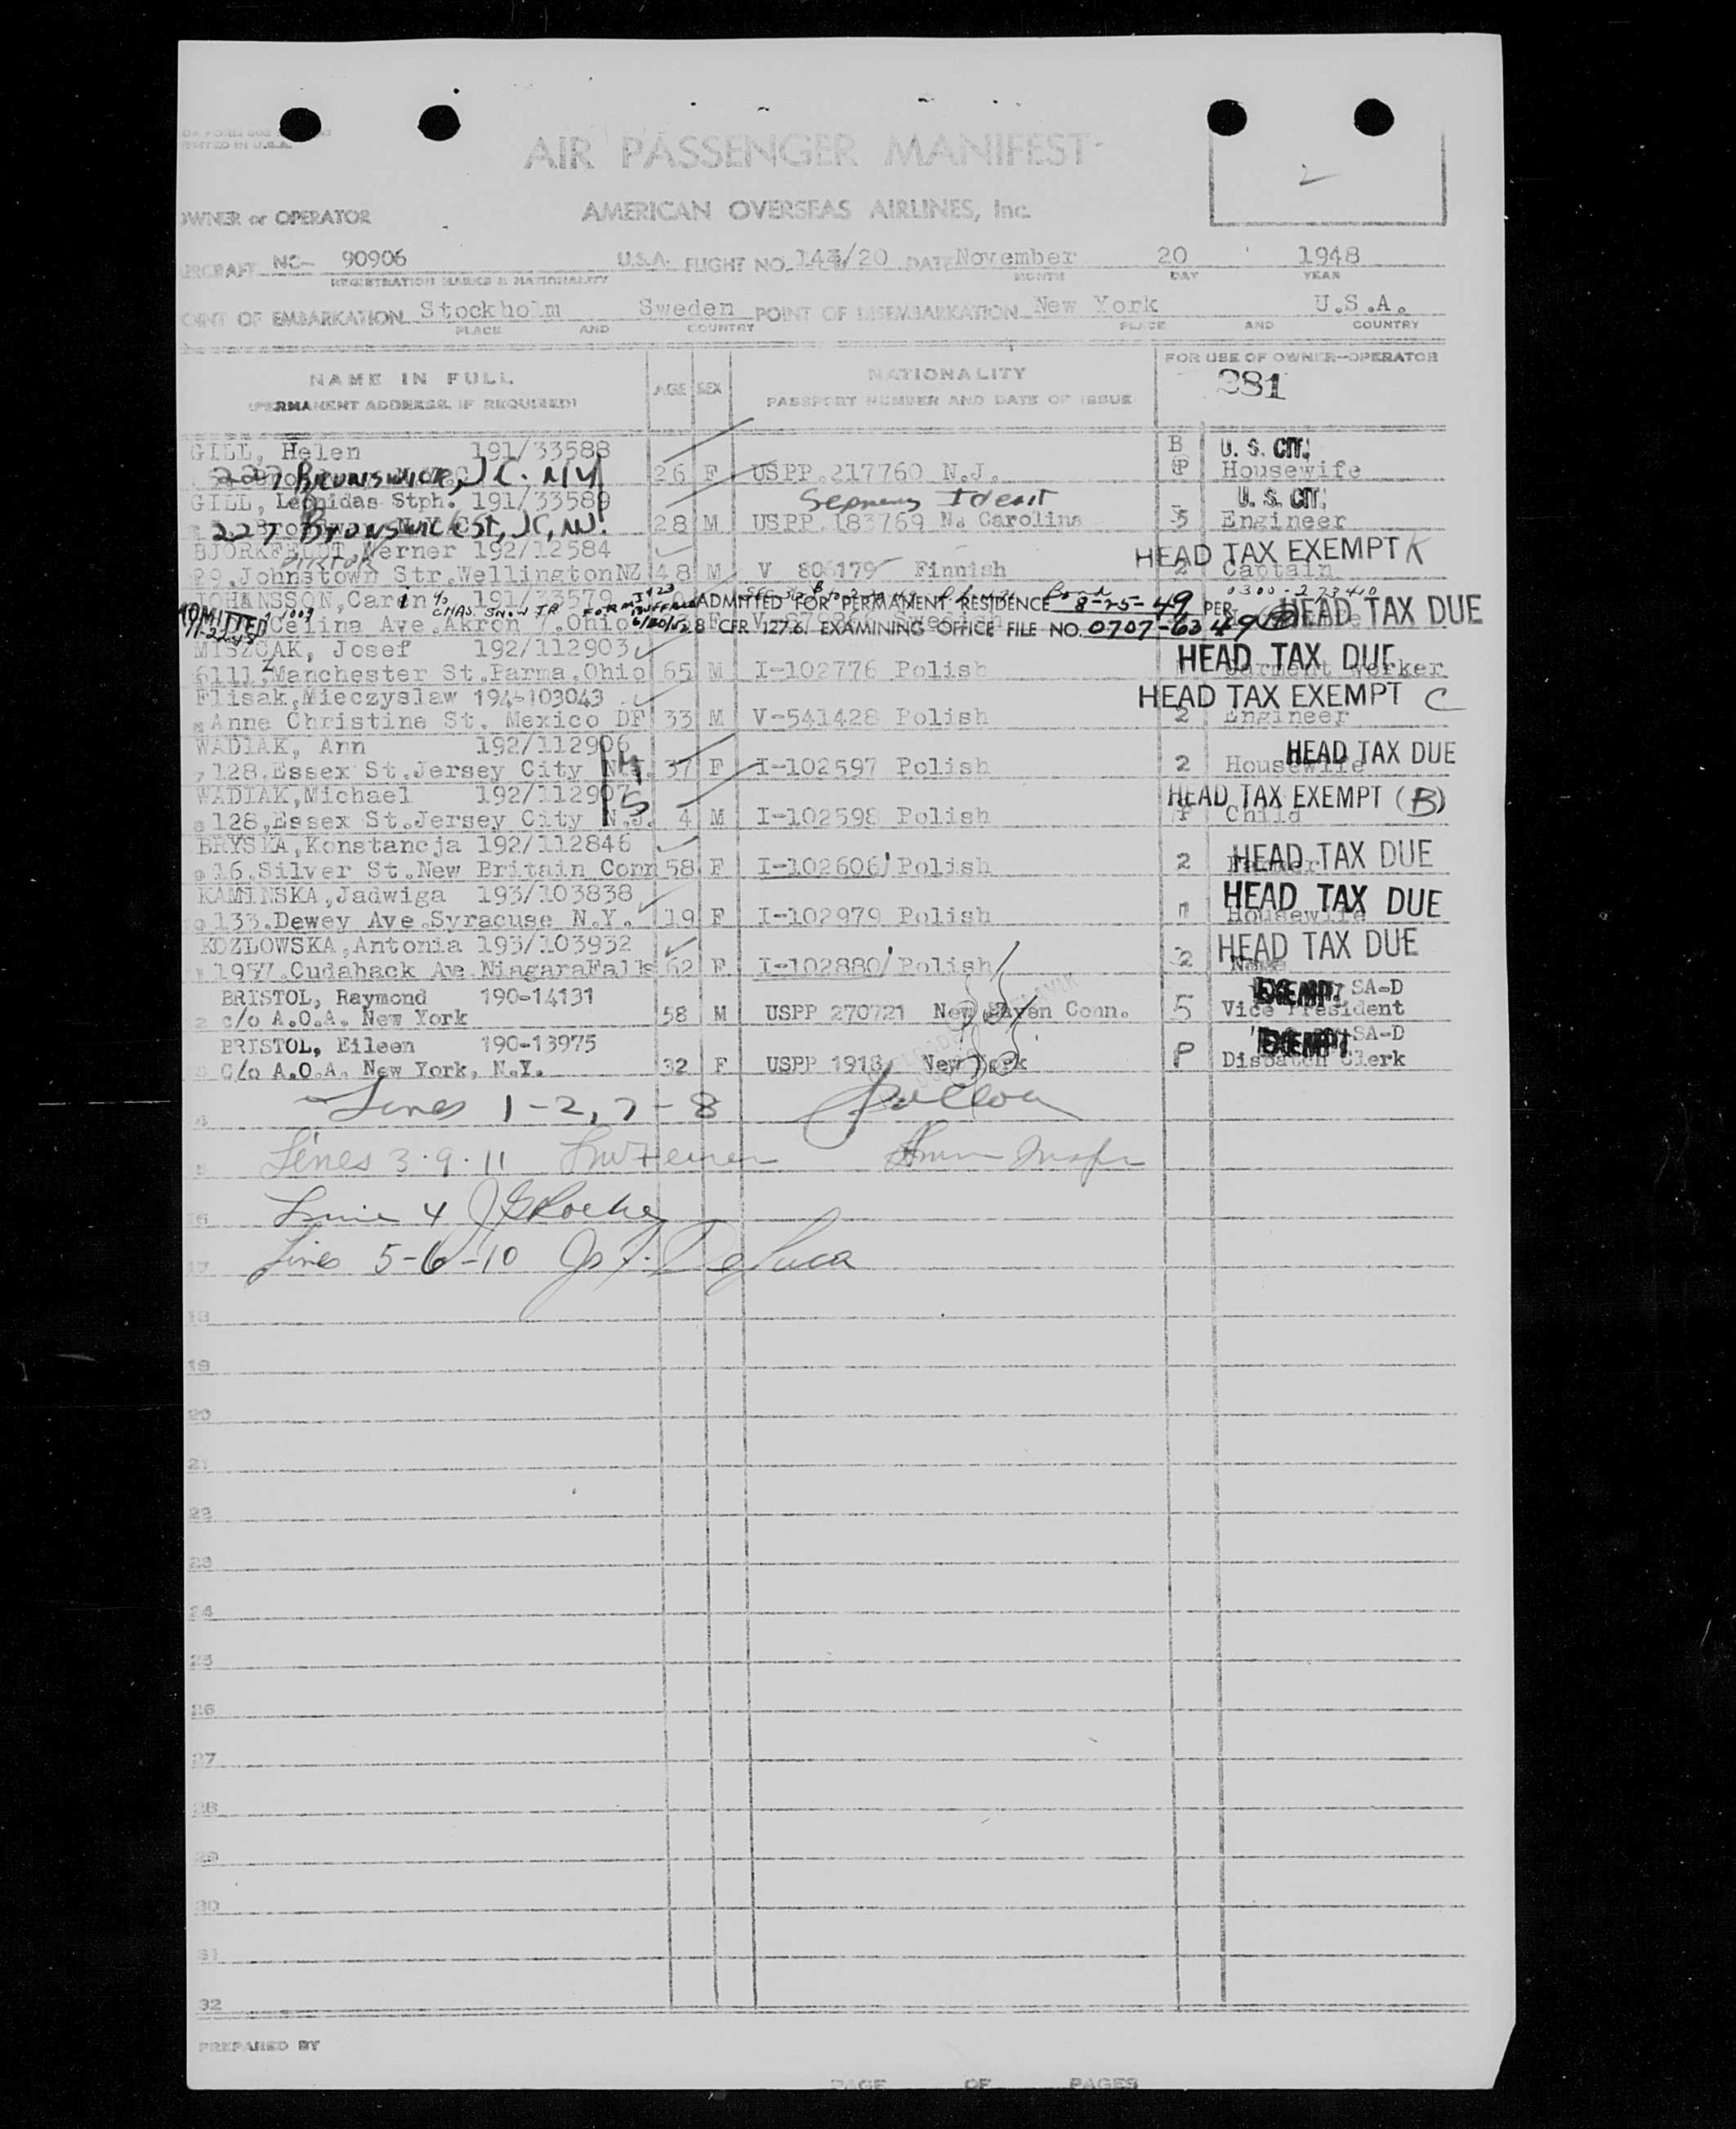 AIR PASSENGER MANIFEST
2
OWNER or OPERATOR AMERICAN OVERSEAS AIRLINES, Inc.
AIRCRAFT NC- 90906 U.S.A. FLIGHT NO. /20 DATE November 20 1948
REGISTRATION MARKS & NATIONALITY MONTH DAY YEAR
POINT OF EMBARKATION Stockholm Sweden POINT OF DISEMBARKATION New York U.S.A.
PLACE AND COUNTRY PLACE AND COUNTRY
NAME IN FULL AGE SEX NATIONALITY FOR USE OF OWNER-OPERATOR
(PERMANENT ADDRESS, IF REQUIRED) PASSPORT NUMBER AND DATE OF ISSUE 381
GILL, Helen 191/33588 B U. S. CIT.
227 BRUNSWICK, J.C. 26 F USPP.217760 N.J. P Housewife
GILL, Leonidas Stph. 191/33589 U. S. CIT.
227 Brunswick St, JC, NJ. 28 M USPP.183769 N. Carolina 5 Engineer
BJORKFELDT, Werner 192/12584 HEAD TAX EXEMPT K
29.Johnstown Str.Wellington NZ 48 M V 806179 Finnish 2 Captain
JOHANSSON, Carin % CHAS. SNOW JR. 191/33579 FORM I 423 BUFFALO ADMITTED FOR PERMANENT RESIDENCE 8-25-49 PER 0300-273410 HEAD TAX DUE
ADMITTED 1003 Celina Ave.Akron 7.Ohio F 8 CFR 127.6. EXAMINING OFFICE FILE NO. 0707-6349
MISZCAK, Josef 192/112903 HEAD TAX DUE
6111.Manchester St.Parma.Ohio 65 M I-102776 Polish Garment worker
Flisak,Mieczyslaw 194-103043 HEAD TAX EXEMPT C
Anne Christine St. Mexico DF 33 M V-541428 Polish 2 Engineer
WADIAK, Ann 192/112906 HEAD TAX DUE
7 128.Essex St.Jersey City N.J. 37 F I-102597 Polish 2 Housewife
WADIAK,Michael 192/112907 HEAD TAX EXEMPT (B)
8 128,Essex St.Jersey City N.J. 4 M I-102598 Polish Child
BRYSKA,Konstancja 192/112846 HEAD TAX DUE
9 16.Silver St.New Britain Conn 58 F I-102606 Polish 2 Farmer
KAMINSKA,Jadwiga 193/103838 HEAD TAX DUE
133.Dewey Ave.Syracuse N.Y. 19 F I-102979 Polish Housewife
KOZLOWSKA,Antonia 193/103932 HEAD TAX DUE
1957.Cudaback Ave NiagaraFalls 62 F I-102880 Polish 2 None
BRISTOL, Raymond 190-14131 EXEMPT SA-D
c/o A.O.A. New York 58 M USPP 270721 New Haven Conn. 5 Vice President
BRISTOL, Eileen 190-13975 EXEMPT SA-D
C/o A.O.A. New York, N.Y. 32 F USPP 1918 New York P Dispatch Clerk
Lines 1-2, 7-8
Lines 3.9.11
Line 4 Roche
Lines 5-6-10 Jos. F. DeLuca
18
19
20
21
22
23
24
25
26
27
28
29
30
31
32
PREPARED BY
PAGE OF PAGES